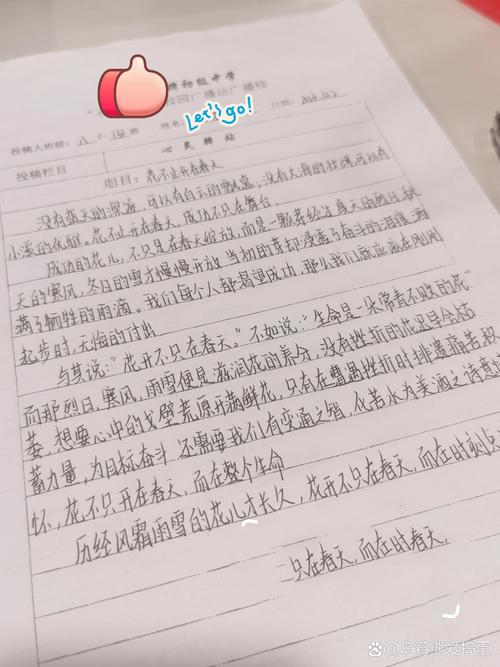 牌初级中学
校园广播站广播稿
Let's go!
投稿人班级: 八 (13)班 姓名: 日期:
投稿栏目 心灵驿站
题目: 花不止开在春天
没有蓝天的深邃,可以有白云的飘逸,没有大海的壮阔,可以有
小溪的优雅。花不止开在春天,成功不只在舞台。
成功的花儿,不只是在春天绽放,而是一颗芽经过夏天的烈日,秋
天的寒风,冬日的雪才慢慢开放。当初的芽却浸透了奋斗的泪痕,洒
满了牺牲的雨滴。我们每个人都渴望成功,那么我们就应该在刚刚
起步时,无悔的付出
与其说:“花开不只在春天。”不如说:“生命是一朵常青不败的花”
而那烈日,寒风,雨雪便是滋润花的养分,没有挫折的花迟早会枯
萎,想要心中的戈壁荒原开满鲜花,只有在遭遇挫折时排遣痛苦,积
蓄力量,为目标奋斗,还需要我们有变通之智,化苦水为美酒之诗意
怀,花不只开在春天,而在整个生命
历经风霜雨雪的花儿才长久,花开不只在春天,而在时刻点
只在春天,而在时春天.
岛莓熊爱捣蛋